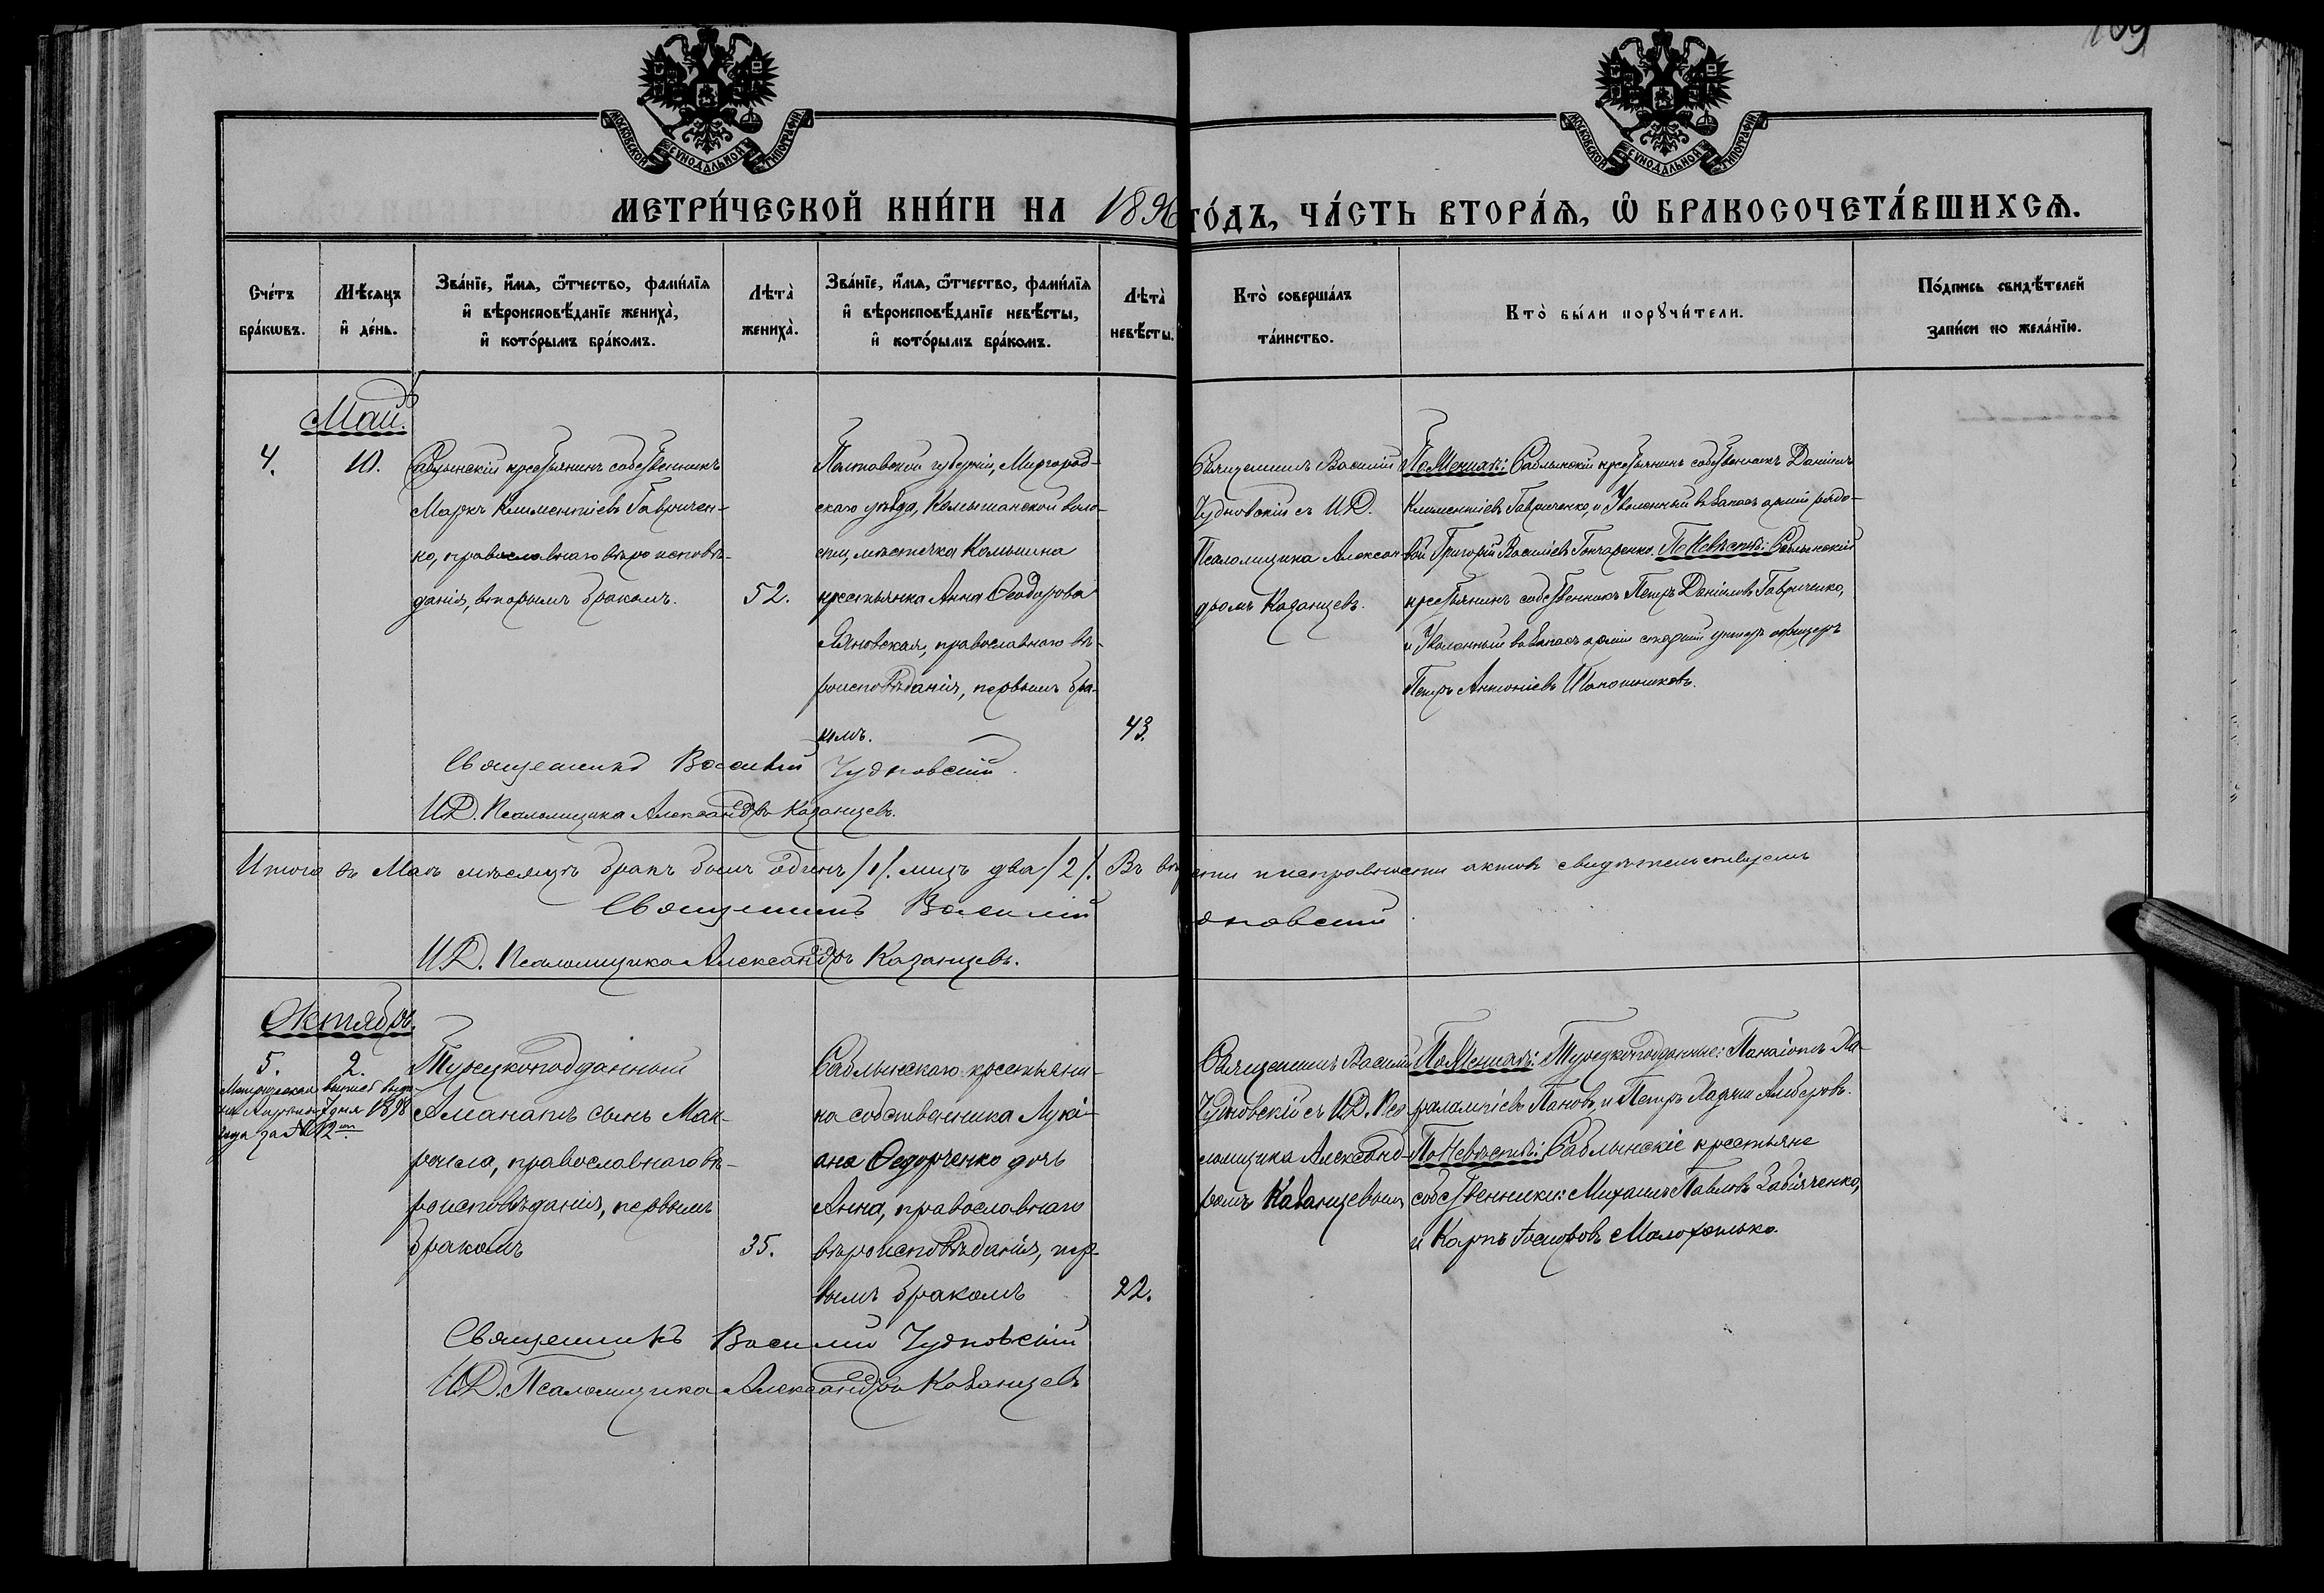 169
МОСКОВСКОЙ СѴНОДАЛЬНОЙ ТИПОГРАФІИ
МОСКОВСКОЙ СѴНОДАЛЬНОЙ ТИПОГРАФІИ
МЕТРИ́ЧЕСКОЙ КНИ́ГИ НА 1896 ГО́ДЪ, ЧА́СТЬ ВТОРА́Ѧ, Ѽ БРАКОСОЧЕТА́ВШИХСѦ.
Сче́тъ
бра́кѡвъ.
Мѣ́сяцъ
и҆ де́нь.
Зва́нїе, и҆́мѧ, ѻ҆́тчество, фами́лїѧ
и҆ вѣроисповѣ́данїе жениха̀,
и҆ кото́рымъ бра́комъ.
Лѣта̀
жениха̀.
Зва́нїе, и҆́мѧ, ѻ҆́тчество, фами́лїѧ
и҆ вѣроисповѣ́данїе невѣ́сты,
и҆ кото́рымъ бра́комъ.
Лѣта̀
невѣ́сты.
Кто̀ соверша́лъ
та́инство.
Кто̀ бы́ли порꙋчи́тели.
По́дпись свидѣ́телей
за́писи по жела́нїю.
Май.
4.
10.
Саблынскій крестьянинъ собственникъ
Маркъ Климентіевъ Гавричен-
ко, православнаго вѣроисповѣ-
данія, вторымъ бракомъ.
52.
Полтавской губерніи, Миргород-
скаго уѣзда, Комышанской воло-
сти, мѣстечка Комышна
крестьянка Анна Ѳеодорова
Яновская, православнаго вѣ-
роисповѣданія, первымъ бра-
комъ.
43.
Священникъ Василій
Чудновскій съ И.Д.
Псаломщика Алексан
дромъ Казанцевъ.
По Женихѣ: Саблынскій крестьянинъ собственникъ Даніилъ
Климентіевъ Гавриченко, и Уволенный въ Запасъ арміи рядо-
вой Григорій Василіевъ Гончаренко. По Невѣстѣ: Саблынскій
крестьянинъ собственникъ Петръ Даніиловъ Гавриченко,
и Уволенный въ Запасъ арміи старшій унтеръ офицеръ
Петръ Антоніевъ Шапошниковъ.
Священникъ Василій Чудновскій.
И.Д. Псаломщика Александръ Казанцевъ.
Итого въ Маѣ мѣсяцѣ бракъ былъ одинъ /1/. лицъ два /2/. Въ вѣр ности и исправности актовъ свидѣтельствуемъ
Священникъ Василій дновскій
И.Д. Псаломщика Александръ Казанцевъ.
Октябрь.
5.
2.
Метрическая выпись выда-
на Апрѣля 7 дня 1898
года за № 12
Турецкоподданный
Аманатъ сынъ Мак-
рочела, православнаго вѣ-
роисповѣданія, первымъ
бракомъ
35.
Саблынскаго крестьяни-
на собственника Лукі-
ана Федорченко дочь
Анна, православнаго
вѣроисповѣданія, пер-
вымъ бракомъ
22.
Священникъ Василій
Чудновскій съ И.Д. Пса
ломщика Александ-
ромъ Казанцевымъ
По Женихѣ: Турецкоподданные: Панаіотъ Ха-
ралампіевъ Пановъ, и Петръ Ладчи Алберовъ.
По Невѣстѣ: Саблынскіе крестьяне
собственники: Михаилъ Павловъ Забіяченко,
и Карпъ Іосифовъ Малохатько.
Священникъ Василій Чудновскій
И.Д. Псаломщика Александръ Казанцевъ